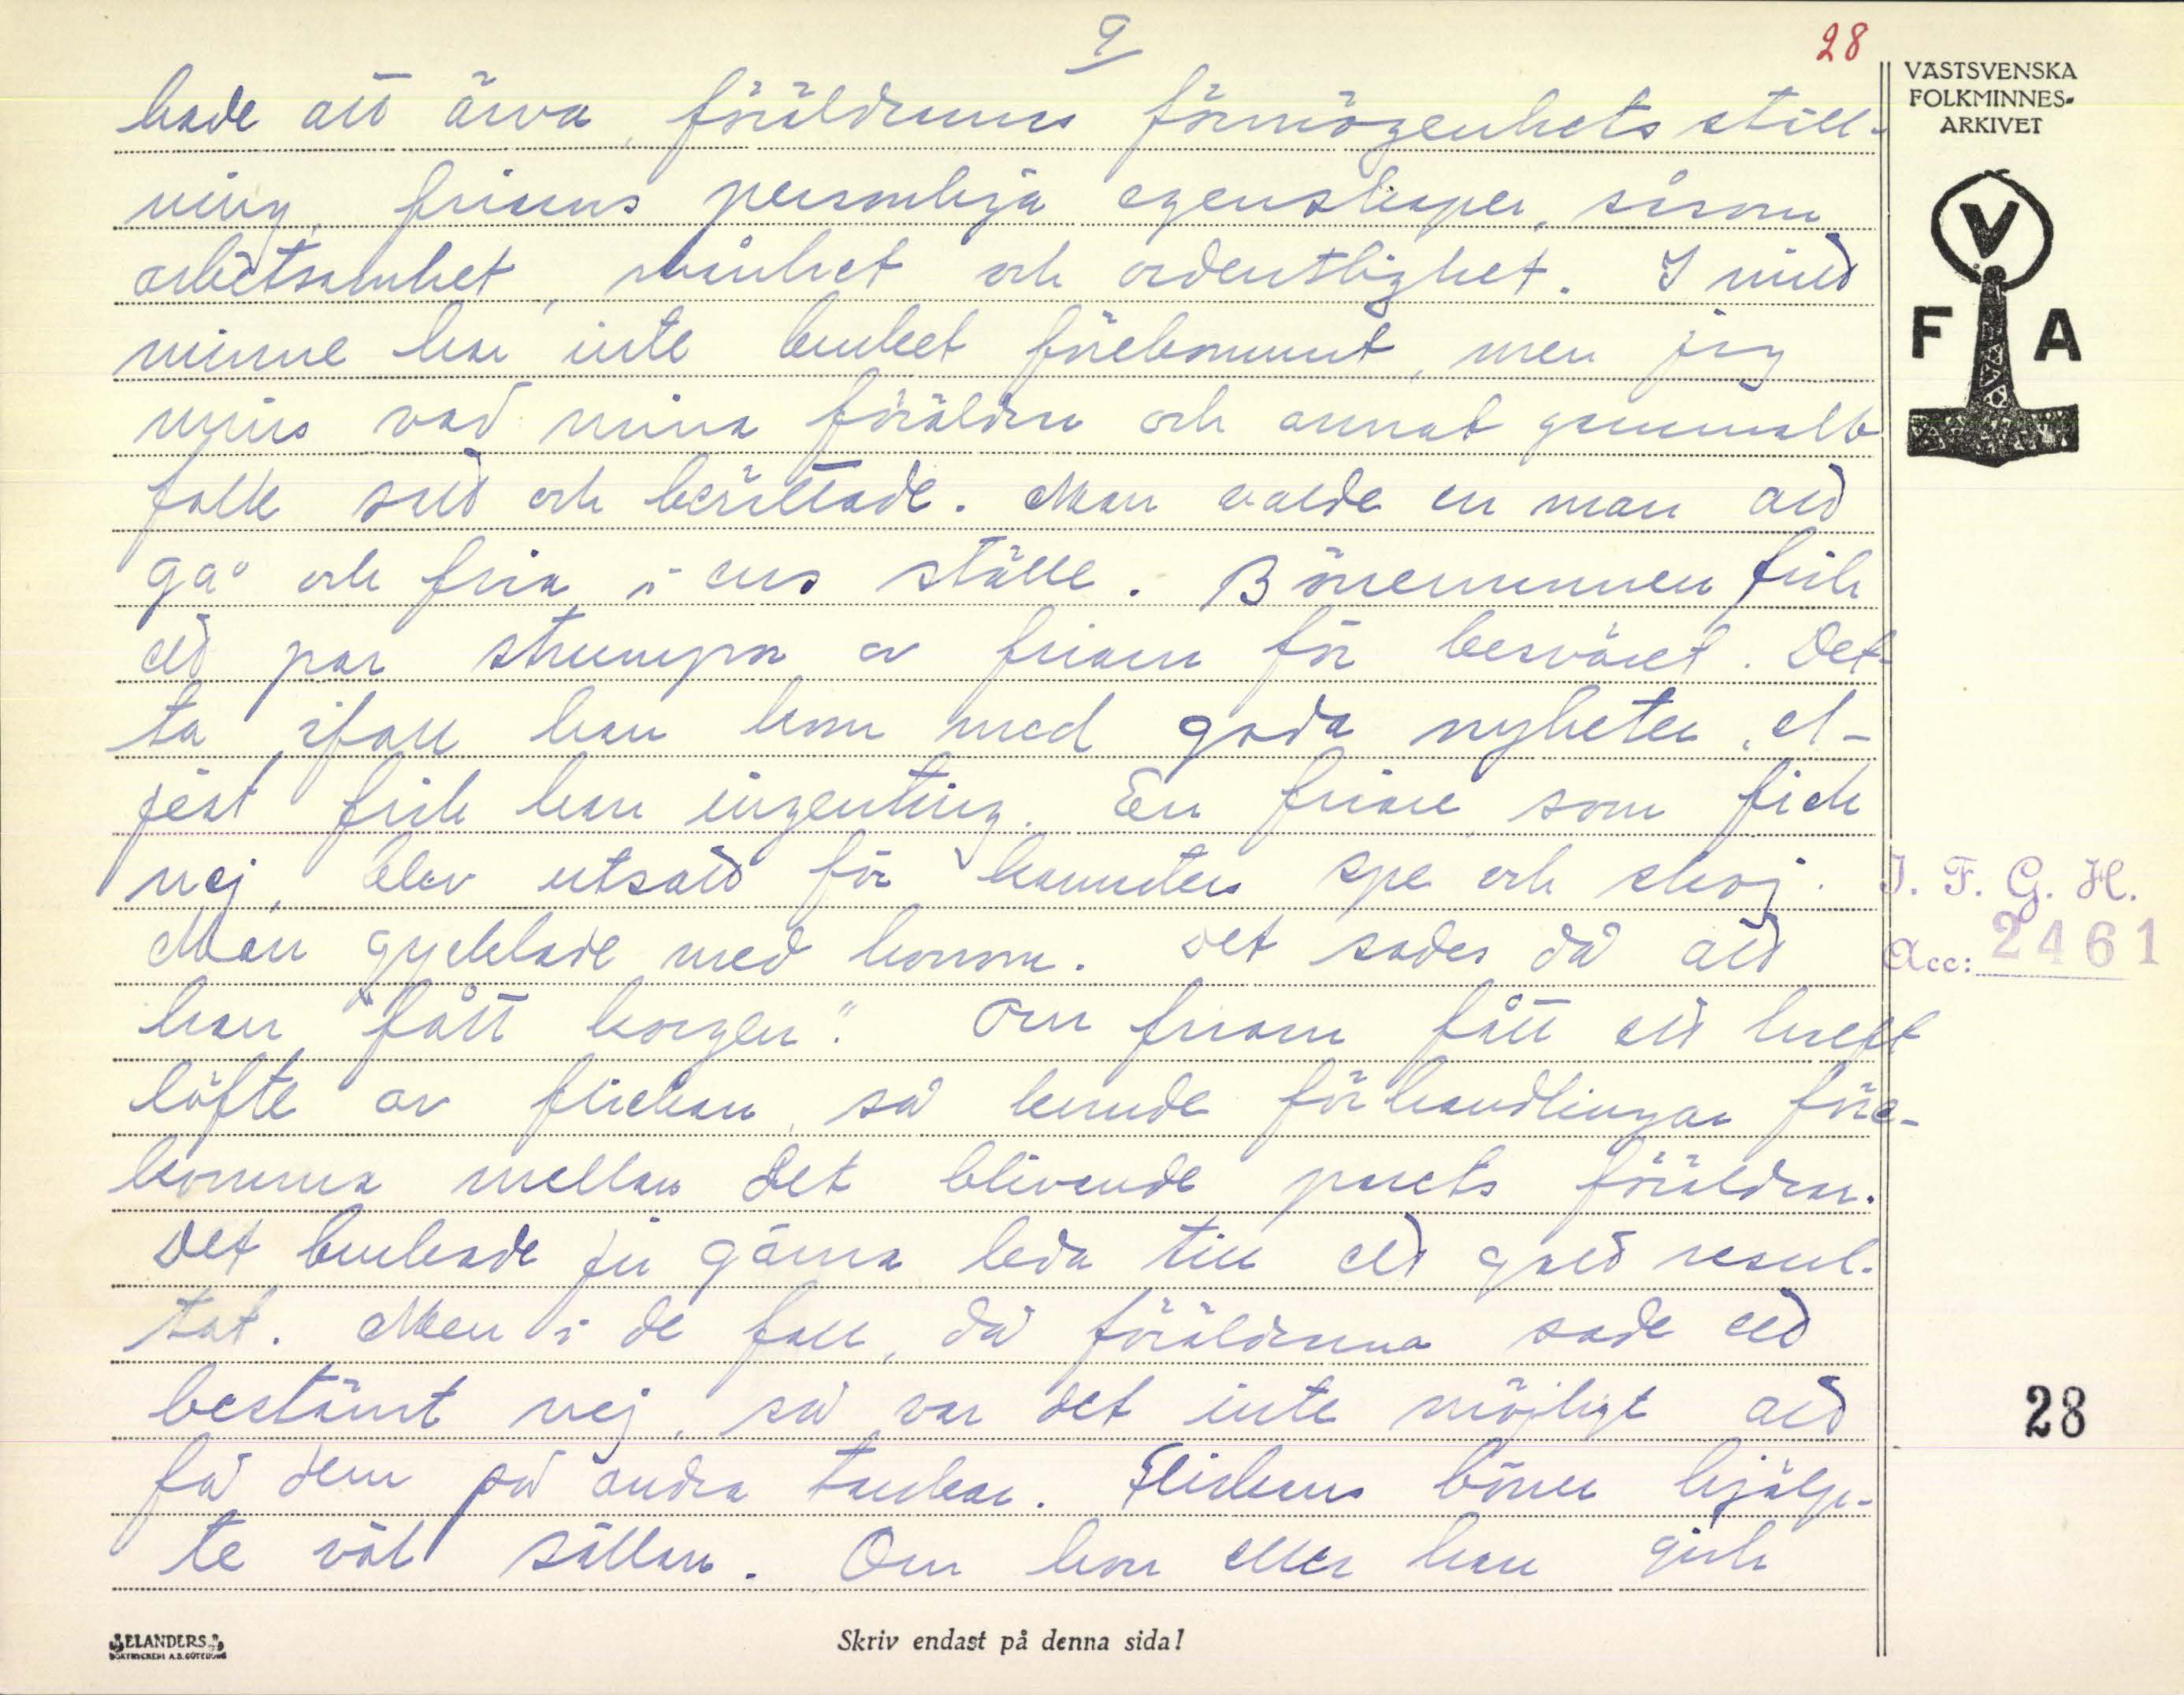 9
28
VÄSTSVENSKA
FOLKMINNES-
ARKIVET
V
F A
hade att ärva, föräldrarnas förmögenhets ställ-
ning, friarens personliga egenskaper, såsom
arbetsamhet, snålhet och ordentlighet. I mitt
minne har inte bruket förekommit, men jag
minns vad mina föräldrar och annat gammalt
folk sett och berättade. Man valde en man att
gå och fria i ens ställe. Bönemannen fick
ett par strumpor av friaren för besväret. Det-
ta ifall han kom med goda nyheter, el-
jest fick han ingenting. En friare, som fick
nej, blev utsatt för kamraters spe och skoj.
Man gycklade med honom. Det sades då att
han "fått korgen". Om friaren fått ett halft
löfte av flickan, så kunde förhandlingar före-
komma mellan det blivande parets föräldrar.
Det brukade ju gärna leda till ett gott resul-
tat. Men i de fall, då föräldrarna sade ett
bestämt nej, så var det inte möjligt att
få dem på andra tankar. Flickans böner hjälp-
te väl sällan. Om hon eller han gick
I. F. G. H.
Acc: 2461
28
ELANDERS
BOKTRYCKERI A.B. GÖTEBORG
Skriv endast på denna sida!